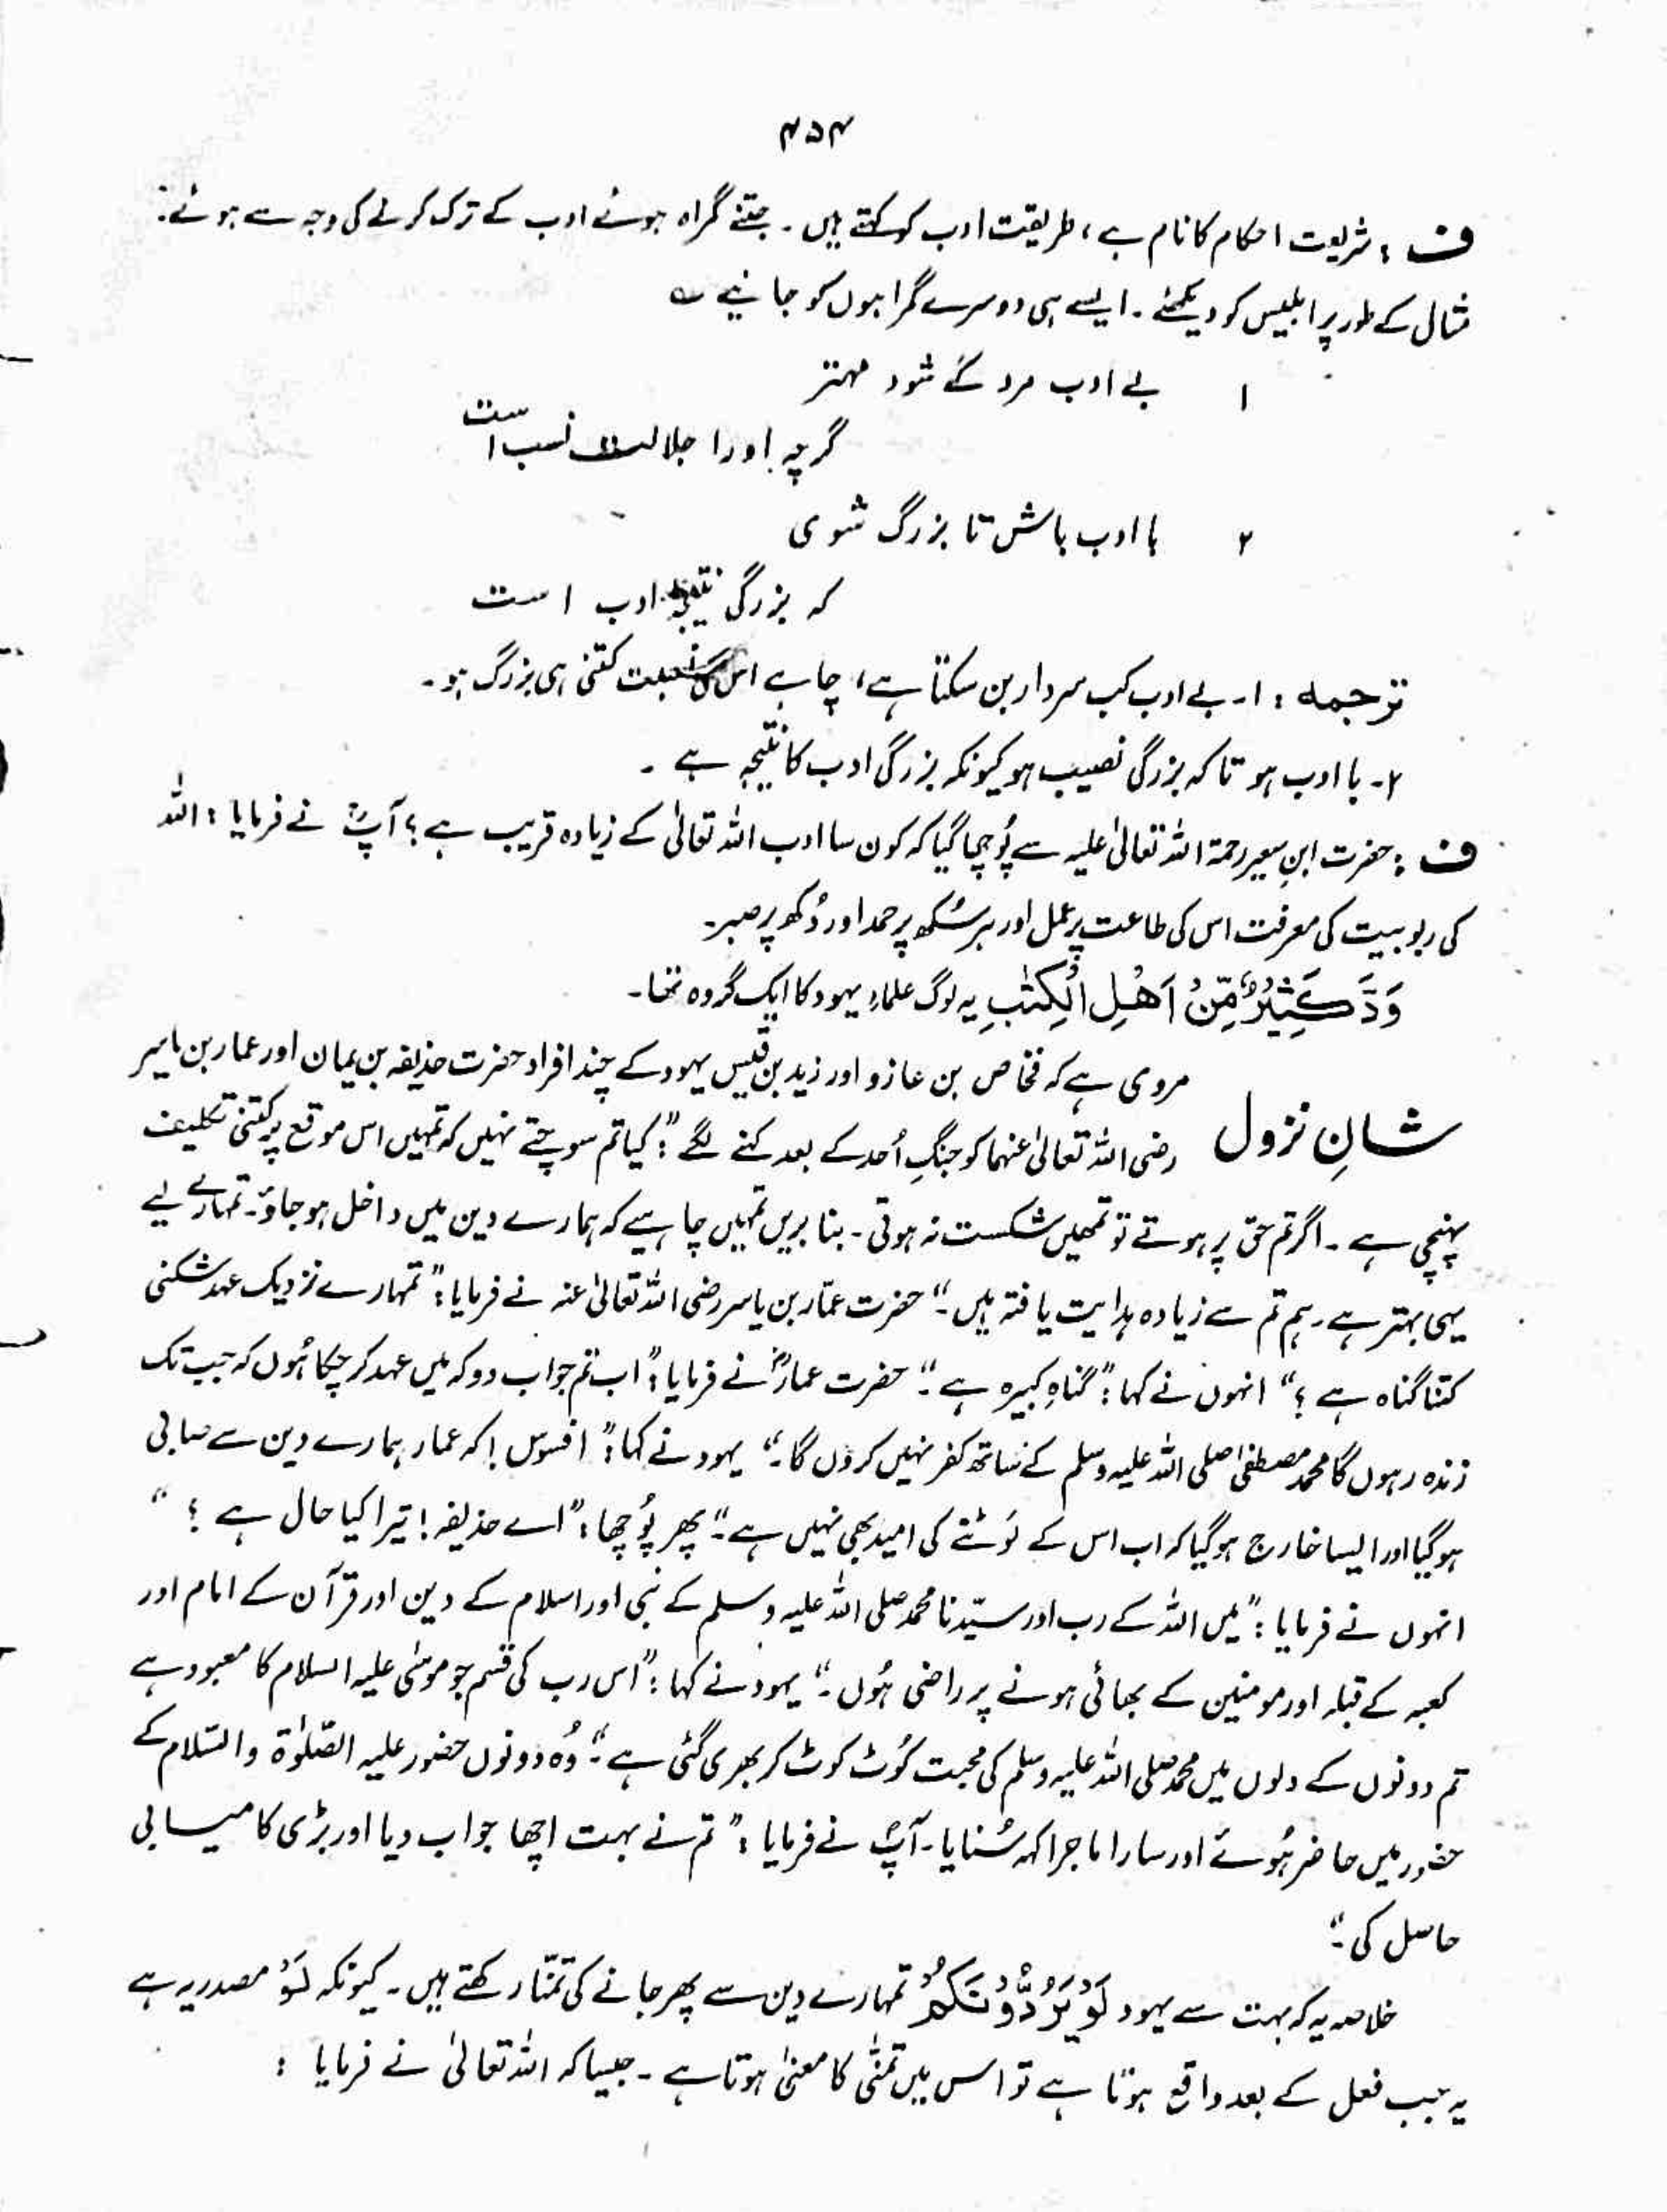 ۴۵۴
ف : شریعت احکام کا نام ہے ، طریقت ادب کو کہتے ہیں ۔ جتنے گمراہ ہوئے ادب کے ترک کرنے کی وجہ سے ہوئے ۔
مثال کے طور پر ابلیس کو دیکھئے ۔ ایسے ہی دوسرے گمراہوں کو جانیے ؎
۱ بے ادب مرد کے شود مہتر
گرچہ اورا جلالت نسب است
۲ با ادب باش تا بزرگ شوی
کہ بزرگی نتیجۂ ادب است
ترجمہ : ۱۔ بے ادب کب سردار بن سکتا ہے ، چاہے اس کی نسبت کتنی ہی بزرگ ہو ۔
۲۔ با ادب ہو تا کہ بزرگی نصیب ہو کیونکہ بزرگی ادب کا نتیجہ ہے ۔
ف : حضرت ابنِ سعیر رحمۃ اللہ تعالیٰ علیہ سے پُوچھا گیا کہ کون سا ادب اللہ تعالیٰ کے زیادہ قریب ہے ؟ آپؒ نے فرمایا : اللہ
کی ربوبیت کی معرفت اس کی طاعت پر عمل اور ہر سُکھ پر حمد اور دُکھ پر صبر ۔
وَدَّ كَثِيْرٌ مِّنْ اَهْلِ الْكِتٰبِ یہ لوگ علماءِ یہود کا ایک گروہ تھا ۔
مروی ہے کہ فخاص بن عازو اور زید بن قیس یہود کے چند افراد حضرت حذیفہ بن یمان اور عمار بن یاسر
شانِ نزول رضی اللہ تعالیٰ عنہما کو جنگِ اُحد کے بعد کہنے لگے : "کیا تم سوچتے نہیں کہ تمہیں اس موقع پر کتنی تکلیف
پہنچی ہے ۔ اگر تم حق پر ہوتے تو تمھیں شکست نہ ہوتی ۔ بنا بریں تمہیں چاہیے کہ ہمارے دین میں داخل ہو جاؤ ۔ تمہارے لیے
یہی بہتر ہے ۔ ہم تم سے زیادہ ہدایت یافتہ ہیں ۔" حضرت عمّار بن یاسر رضی اللہ تعالیٰ عنہ نے فرمایا : "تمہارے نزدیک عہد شکنی
کتنا گناہ ہے ؟" انہوں نے کہا : "گناہِ کبیرہ ہے ۔" حضرت عمارؓ نے فرمایا : "اب تم جواب دو کہ میں عہد کر چکا ہُوں کہ جب تک
زندہ رہوں گا محمد مصطفیٰ صلی اللہ علیہ وسلم کے ساتھ کفر نہیں کروں گا ۔" یہود نے کہا : "افسوس ! کہ عمار ہمارے دین سے صابی
ہو گیا اور ایسا خارج ہو گیا کہ اب اس کے لَوٹنے کی امید بھی نہیں ہے ۔" پھر پُوچھا : "اے حذیفہ ! تیرا کیا حال ہے ؟"
انہوں نے فرمایا : "میں اللہ کے رب اور سیّدنا محمد صلی اللہ علیہ وسلم کے نبی اور اسلام کے دین اور قرآن کے امام اور
کعبہ کے قبلہ اور مومنین کے بھائی ہونے پر راضی ہُوں ۔" یہود نے کہا : "اس رب کی قسم جو موسٰی علیہ السلام کا معبود ہے
تم دونوں کے دلوں میں محمد صلی اللہ علیہ وسلم کی محبت کُوٹ کوٹ کر بھری گئی ہے ۔" وُہ دونوں حضور علیہ الصّلوٰۃ والسّلام کے
حضور میں حاضر ہُوئے اور سارا ماجرا کہہ سُنایا ۔ آپؐ نے فرمایا : "تم نے بہت اچھا جواب دیا اور بڑی کامیابی
حاصل کی ۔"
خلاصہ یہ کہ بہت سے یہود لَوْ يَرُدُّوْنَكُمْ تمہارے دین سے پھر جانے کی تمنّا رکھتے ہیں ۔ کیونکہ لَوْ مصدریہ ہے
یہ جب فعل کے بعد واقع ہوتا ہے تو اس میں تمنّٰی کا معنیٰ ہوتا ہے ۔ جیسا کہ اللہ تعالیٰ نے فرمایا :